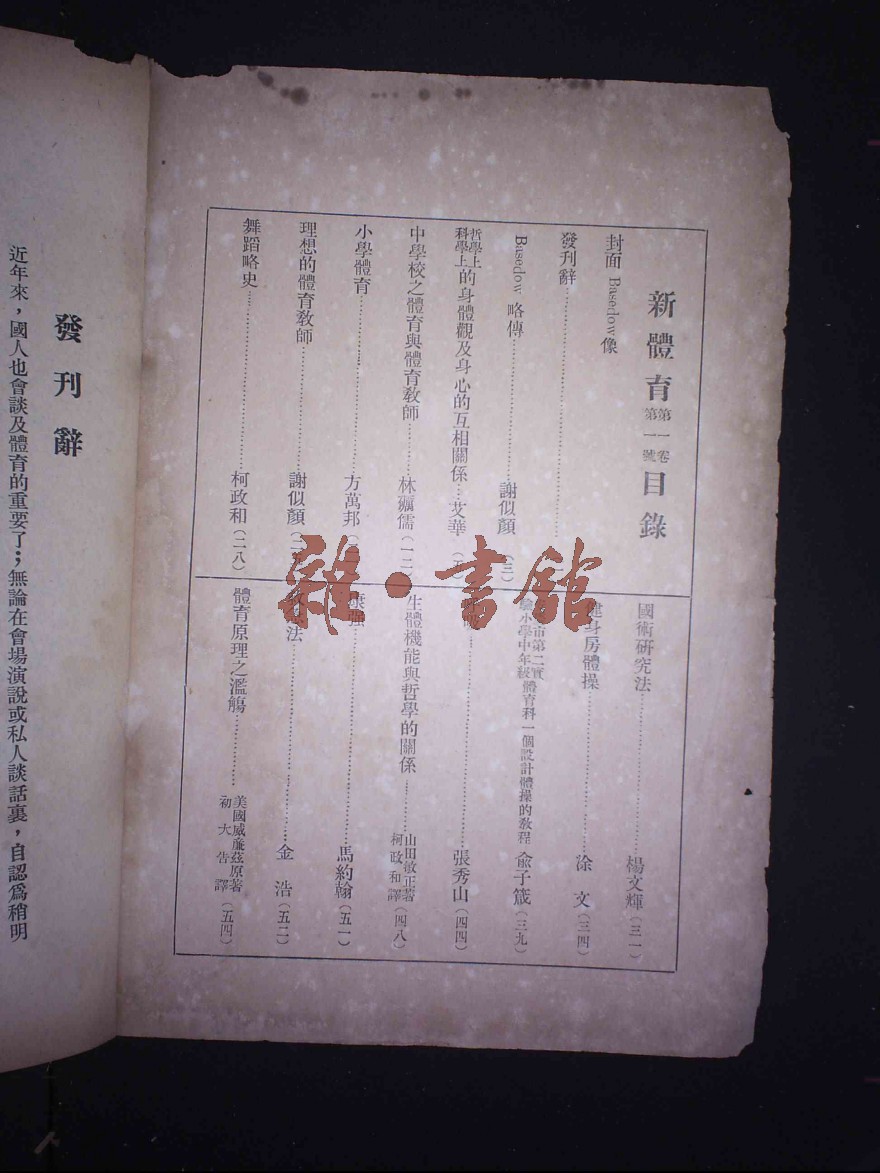 新體育第一卷第一號目錄
封面 Basedow像
發刊辭
Basedow 略傳 謝似顏(三)
哲學上科學上的身體觀及身心的互相關係 艾華
中學校之體育與體育教師 林
儒(一二
小學體育 方萬邦
理想的體育教師 謝似顏(二
舞蹈略史 柯政和(二八)
國術研究法 楊文輝(三一)
健身房體操 涂文(三四)
市第二實驗小學中年級體育科一個設計體操的教程 俞子箴(三九)
張秀山(四四)
生體機能與哲學的關係 山田敏正著 柯政和譯(四八)
康強 馬約翰(五一)
法 金浩(五二)
體育原理之濫觴 美國威廉茲原著 初大告譯(五四)
發刊辭
近年來,國人也會談及體育的重要了;無論在會場演說或私人談話裏,自認爲稍明
雜·書館